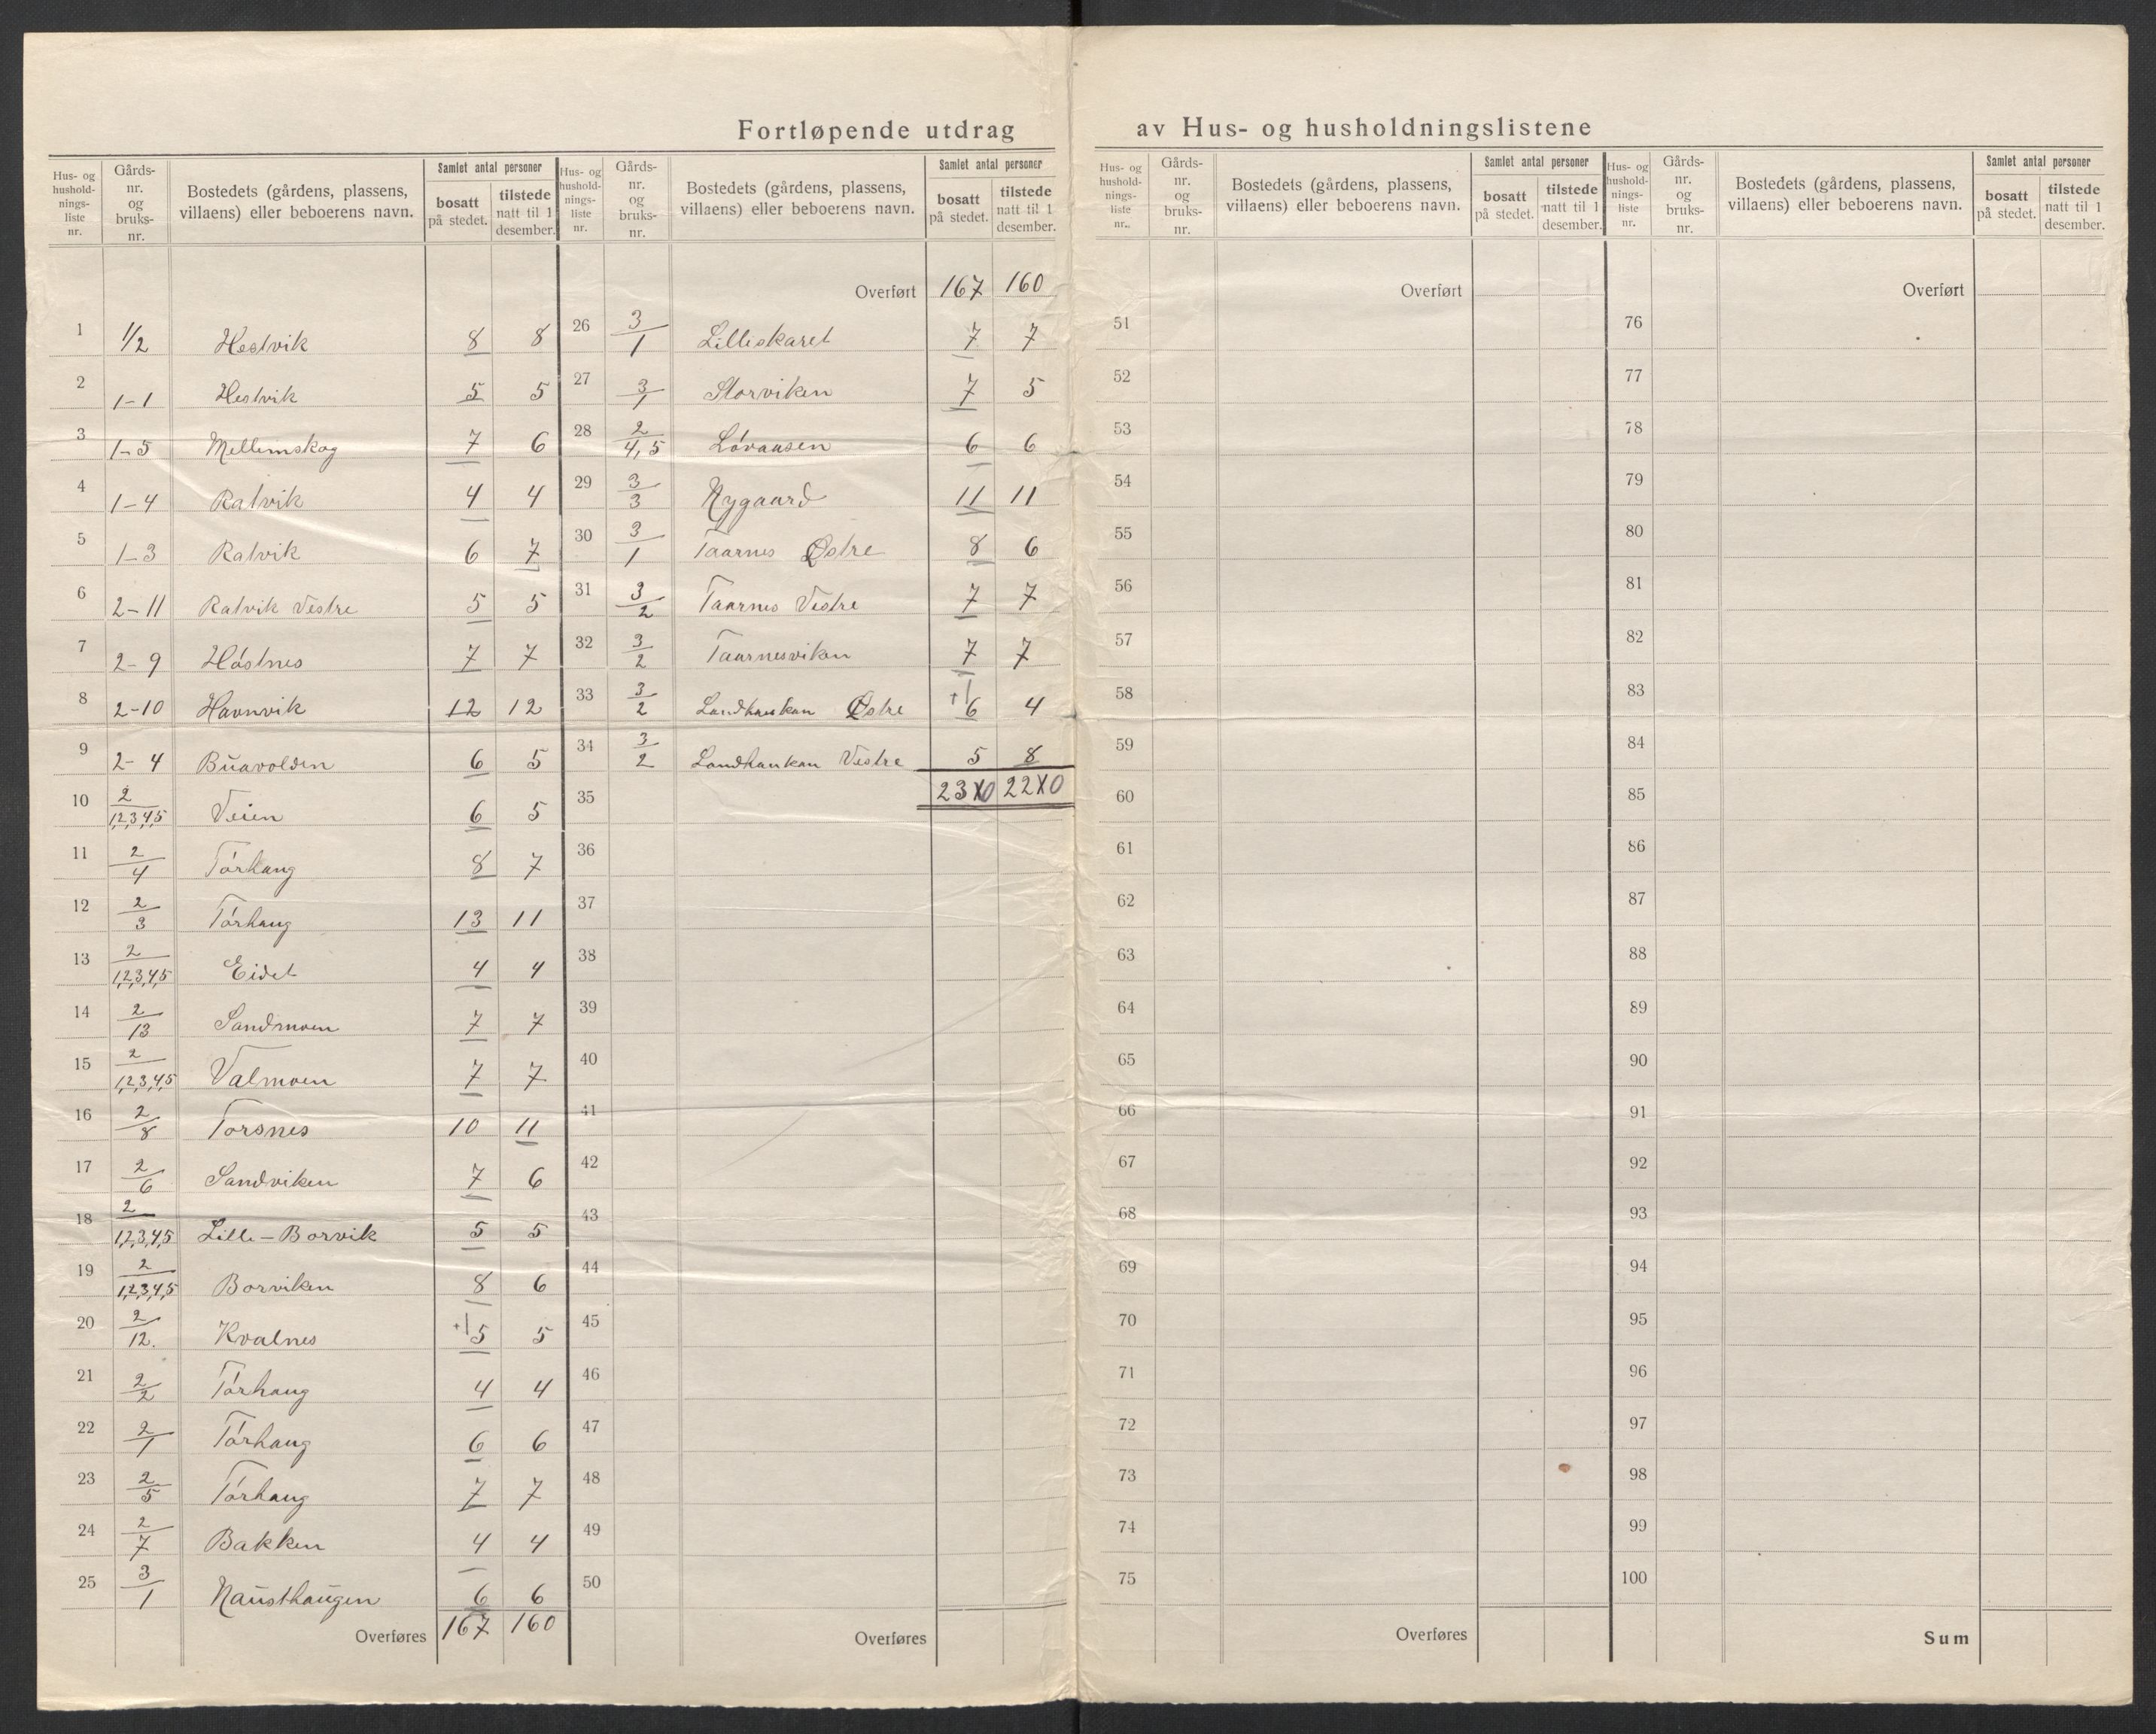 Fortløpende utdrag av Hus- og husholdningslistene
Hus- og hushold-nings-liste nr. | Gårds-nr. og bruks-nr. | Bostedets (gårdens, plassens, villaens) eller beboerens navn. | Samlet antal personer | bosatt på stedet. | tilstede natt til 1 desember.
1 1/2 Hestvik 8 8
2 1-1 Hestvik 5 5
3 1-5 Mellemskog 7 6
4 1-4 Ratvik 4 4
5 1-3 Ratvik 6 7
6 2-11 Ratvik Vestre 5 5
7 2-9 Høstnes 7 7
8 2-10 Havnvik 12 12
9 2-4 Buavolden 6 5
10 2/1,2,3,4,5 Veien 6 5
11 2/4 Tørhaug 8 7
12 2/3 Tørhaug 13 11
13 2/1,2,3,4,5 Eidet 4 4
14 2/13 Sandmoen 7 7
15 2/1,2,3,4,5 Valmoen 7 7
16 2/8 Torsnes 10 11
17 2/6 Sandviken 7 6
18 2/1,2,3,4,5 Lille-Borvik 5 5
19 2/1,2,3,4,5 Borviken 8 6
20 2/12. Kvalnes +1 5 5
21 2/2 Tørhaug 4 4
22 2/1 Tørhaug 6 6
23 2/5 Tørhaug 7 7
24 2/7 Bakken 4 4
25 3/1 Nausthaugen 6 6
Overføres 167 160
Hus- og hushold-nings-liste nr. | Gårds-nr. og bruks-nr. | Bostedets (gårdens, plassens, villaens) eller beboerens navn. | Samlet antal personer | bosatt på stedet. | tilstede natt til 1 desember.
Overført 167 160
26 3/1 Lilleskaret 7 7
27 3/1 Storviken 7 5
28 2/4,5 Løvaasen 6 6
29 3/3 Nygaard 11 11
30 3/1 Taarnes Østre 8 6
31 3/2 Taarnes Vestre 7 7
32 3/2 Taarnesviken 7 7
33 3/2 Østre +1 6 4
34 3/2 Vestre 5 8
35
36
37
38
39
40
41
42
43
44
45
46
47
48
49
50
Overføres
Hus- og hushold-nings-liste nr. | Gårds-nr. og bruks-nr. | Bostedets (gårdens, plassens, villaens) eller beboerens navn. | Samlet antal personer | bosatt på stedet. | tilstede natt til 1 desember.
Overført
51
52
53
54
55
56
57
58
59
60
61
62
63
64
65
66
67
68
69
70
71
72
73
74
75
Overføres
Hus- og hushold-nings-liste nr. | Gårds-nr. og bruks-nr. | Bostedets (gårdens, plassens, villaens) eller beboerens navn. | Samlet antal personer | bosatt på stedet. | tilstede natt til 1 desember.
Overført
76
77
78
79
80
81
82
83
84
85
86
87
88
89
90
91
92
93
94
95
96
97
98
99
100
Sum